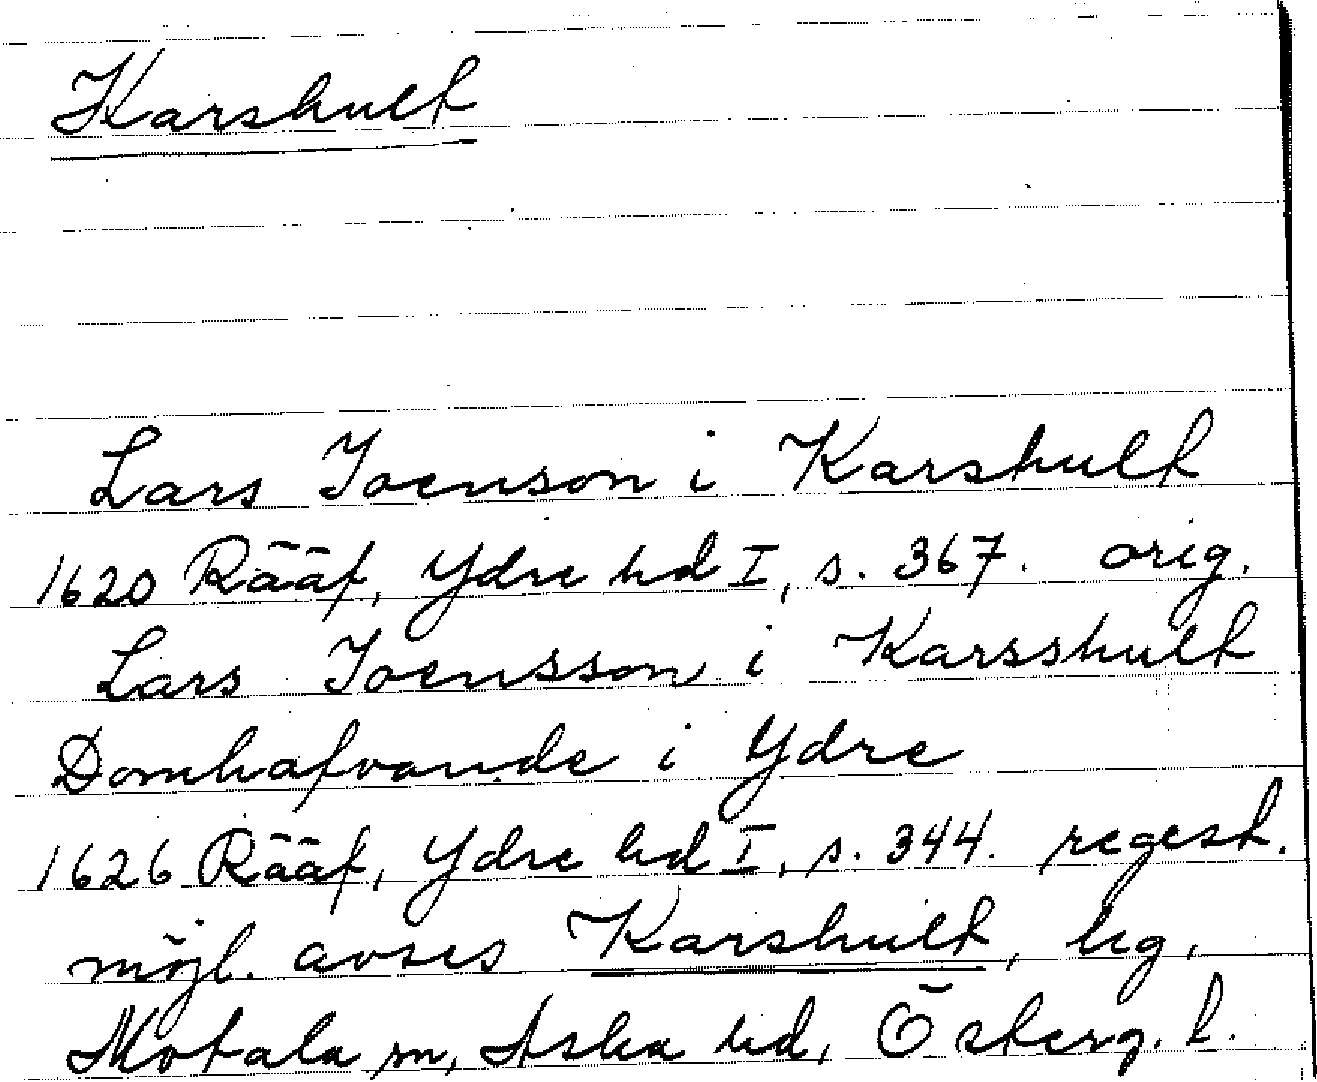 Karshult
Lars Joenson i Karshult
1620 Rääf, Ydre hd I, s. 367. orig.
Lars Joensson i Karsshult
Domhafvande i Ydre
1626 Rääf, Ydre hd I, s. 344. regest.
möjl. avses Karshult, hg,
Motala sn, Aska hd, Österg. l.